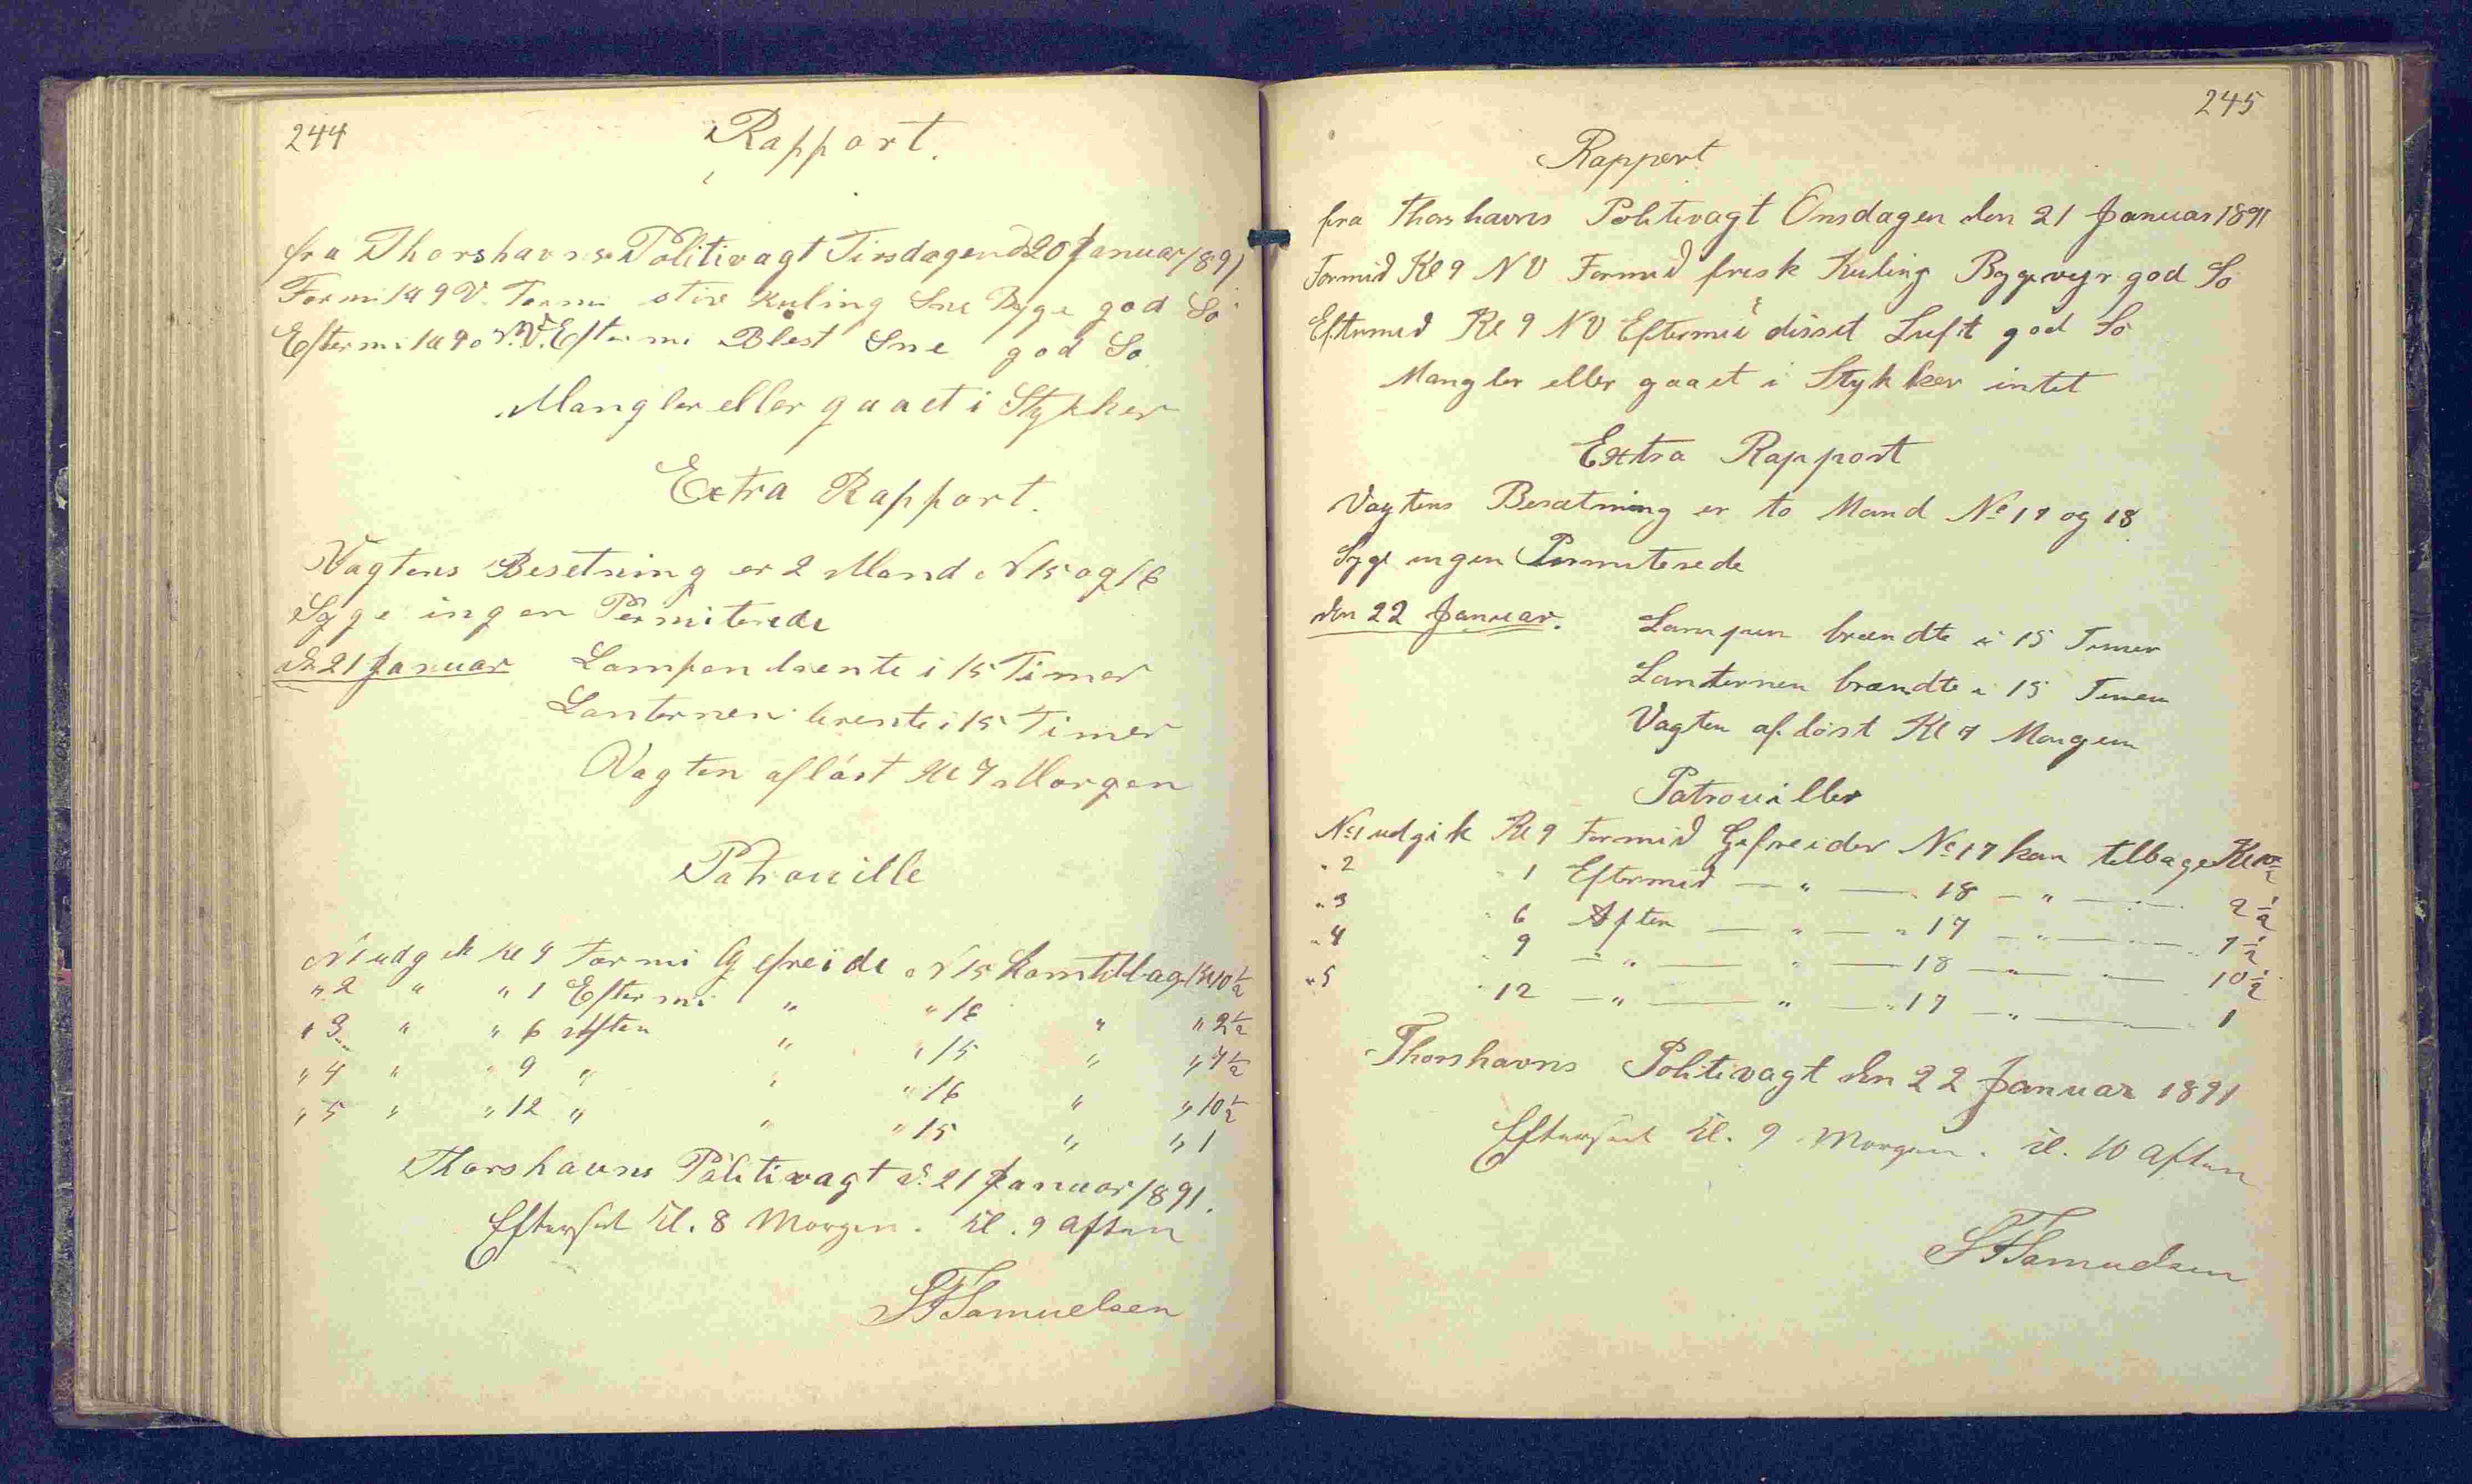 244
Rapport.
fra Thorshavns Politivagt Tirsdagen d 20 Januar 1891
Formi Kl 9 V. Formi stiv Kuling Sne Byge god So
Eftermi Kl 9 N.V. Eftermi Blest Sne god So
Mangler eller gaaet i Stykker
Extra Rapport.
Vagtens Besetning er 2 Mand N 15 og 16
Syge ingen Permiterede
d. 21 Januar Lampen brente i 15 Timer
Lanternen brente i 15 Timer
Vagten afløst Kl 7 Morgen
Patrouille
N 1 udgik Kl 9 Formi Gefreide N 15 kom tilbag Kl 10 1/2
" 2 " " 1 Eftermi " " 16 " " 2 1/2
" 3 " " 6 Aften " " 15 " " 7 1/2
" 4 " " 9 " " " 16 " " 10 1/2
" 5 " " 12 " " " 15 " " 1
Thorshavns Politivagt d. 21 Januar 1891.
Efterset Kl. 8 Morgen. Kl. 9 Aften
SFSamuelsen
245
Rapport
fra Thorshavns Politivagt Onsdagen den 21 Januar 1891
Formid Kl 9 NV Formid frisk Kuling Bygeveyr god So
Eftermid Kl 9 NV Eftermid disset Luft god So
Mangler eller gaaet i Stykker intet
Extra Rapport
Vagtens Besætning er to Mand No 17 og 18
Syge ingen Permiterede
den 22 Januar. Lampen brændte i 15 Timer
Lanternen brændte i 15 Timer
Vagten afløst Kl 7 Morgen
Patrouiller
No 1 udgik Kl 9 Formid Gefreider No 17 kom tilbage Kl 10 1/2
" 2 " 1 Eftermid — " — " 18 — " — " 2 1/2
" 3 " 6 Aften — " — " 17 — " — " 7 1/2
" 4 " 9 — " — " — 18 — " — " — 10 1/2
" 5 " 12 — " — " — " 17 — " — " 1
Thorshavns Politivagt den 22 Januar 1891
Efterset Kl. 9 Morgen. Kl. 10 Aften
SFSamuelsen